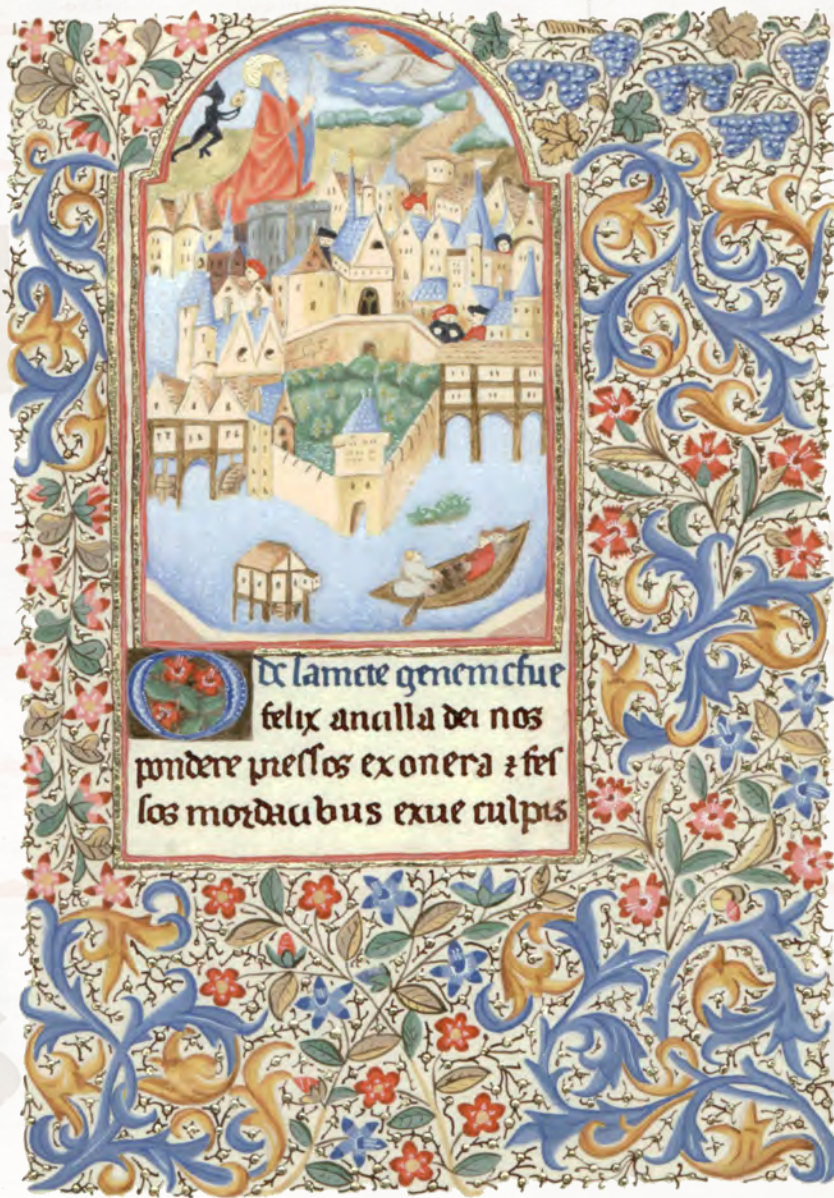 De saincte geneuiefue
O felix ancilla dei nos
pondere pressos exonera ⁊ fes
sos mordacibus exue culpis